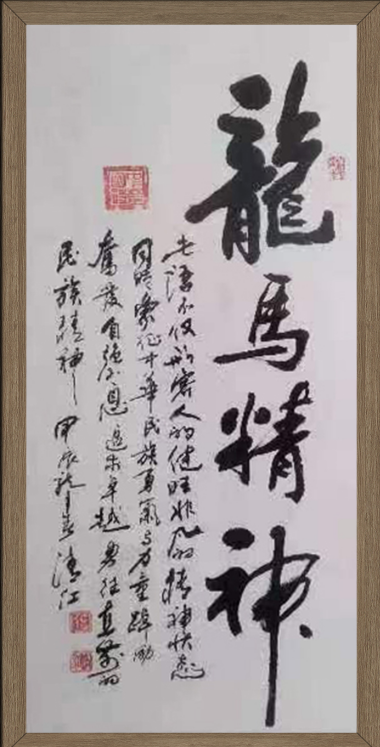 龍馬精神
语不仅形容人的健旺非凡的精神状态
同时象征中华民族勇气与力量踔励
奮发自强不息追求卓越勇往直前的
民族精神 甲辰龙年春清江